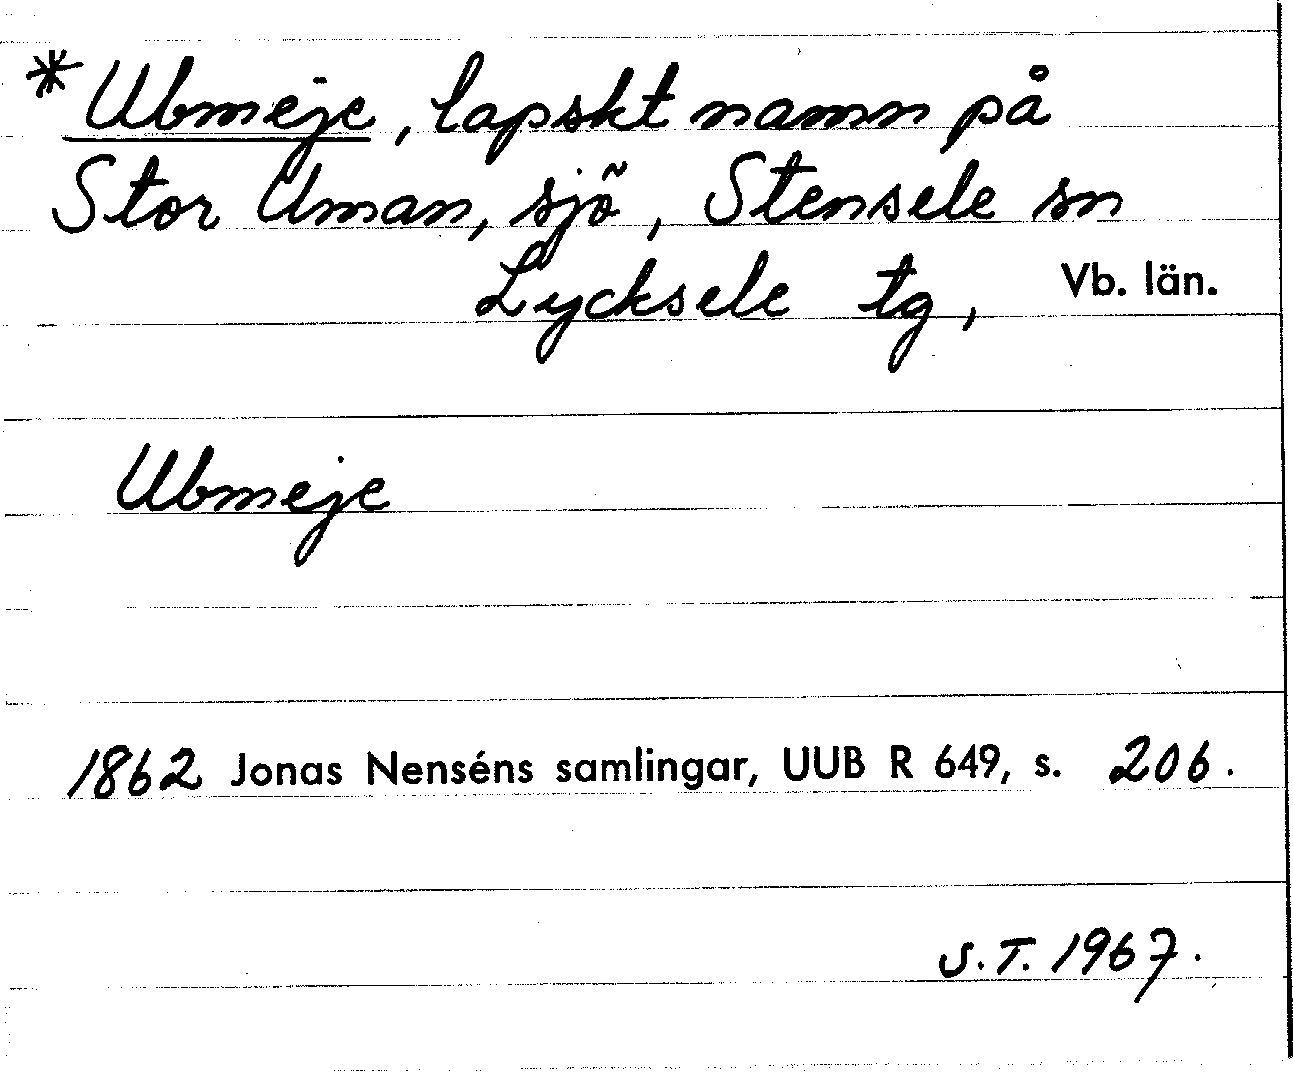 * Ubmeje, lapskt namn på
Stor Uman, sjö, Stensele sn
Lycksele tg, Vb. län.
Ubmeje
1862 Jonas Nenséns samlingar, UUB R 649, s. 206.
S.T. 1967.